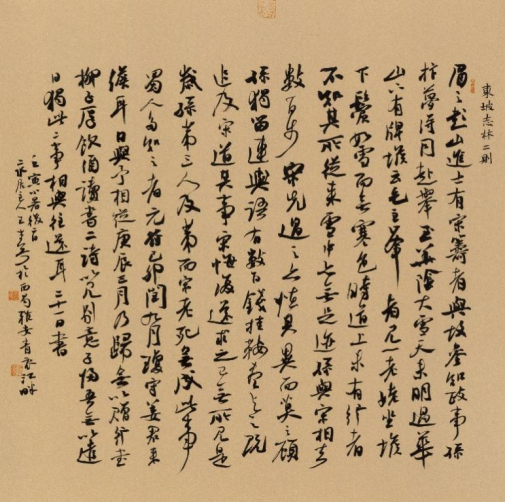 東坡志林二則
眉之彭山進士有宋籌者與故參知政事孫
抃夢得同赴舉至華陰大雪天未明過華
山下有牌堠云毛女峰者見一老姥坐堠
下鬢如雪而無寒色時道上未有行者
不知其所從來雪中亦無足跡孫與宋相去
數百步宋先過之亦怪其異而莫之顧
孫獨留連與語有數百錢挂鞍盡與之既
追及宋道其事宋悔復還求之已無所見是
歲孫第三人及第而宋老死無成此事
蜀人多知之者元符己卯閏九月瓊守姜君來
儋耳日與予相從庚辰三月乃歸無以贈行書
柳子厚飲酒讀書二詩以見別意子歸吾無以遣
日獨此二事相與往還耳二十一日書
壬寅小暑後
於西蜀雅安青衣江畔